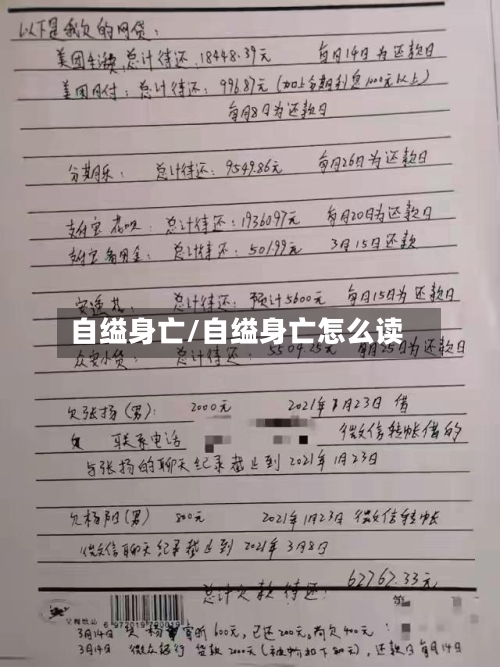 以下是我欠的网贷:
美团生活费,总计待还,18448.39元 每月14日为还款日
美团月付:总计待还:996.87元(加上各期利息1000元以上)
每月8日为还款日
分期乐:总计待还:9549.86元 每月26日为还款日
支付宝花呗:总计待还:19360.97元 每月20日为还款日
支付宝备用金:总计待还:501.99元 3月15日还款
总计待还:预计5600元 每月15日为还款日
自缢身亡/自缢身亡怎么读
众安小贷: 总计待还: 5504.25元 每月25日为还款日
欠张扬(男): 2000元 2021年1月23日 借
联系电话 微信转帐借的
与张扬的聊天纪录截止到2021年1月23日
欠杨阳(男) 800元 2021年1月23日 微信转帐
微信聊天纪录截止到2021年3月8日
总计欠款待还: 62762.33元
6 972019 790019
3月14日 600元,已还200元,尚欠400元
3月14日 微众银行 贷款2000元 还款日每月14日